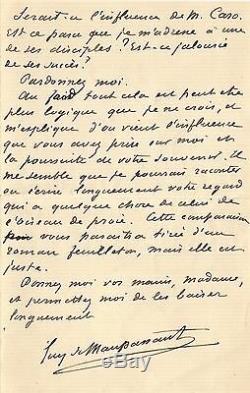 Serait-ce l'influence de M. Caro.
Est ce parce que je m'adresse à une
de ses disciples ? Est-ce jalousie
de ses succès ?
Pardonnez moi.
Au fond tout cela est peut être
plus logique que je ne crois, et
m'explique d'où vient l'influence
que vous avez prise sur moi et
la poursuite de votre souvenir. Il
me semble que je pourrais raconter
ou écrire longuement votre regard
qui a quelque chose de celui de
l'oiseau de proie. Cette comparaison
vous paraîtra tirée d'un
roman feuilleton, mais elle est
juste.
Donnez moi vos mains, madame,
et permettez moi de les baiser
longuement
Guy de Maupassant